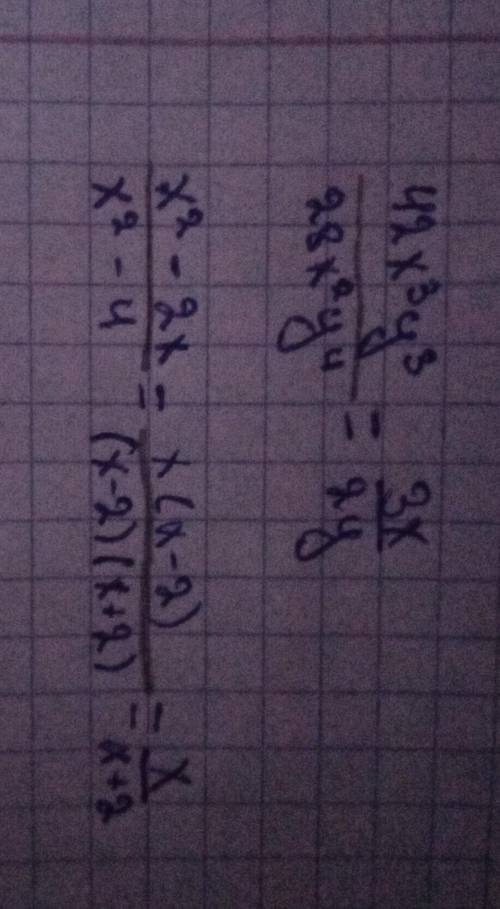 42x³y³/28x²y⁴ = 3x/2y
x² - 2x/x² - 4 = x(x-2)/(x-2)(x+2) = x/x+2